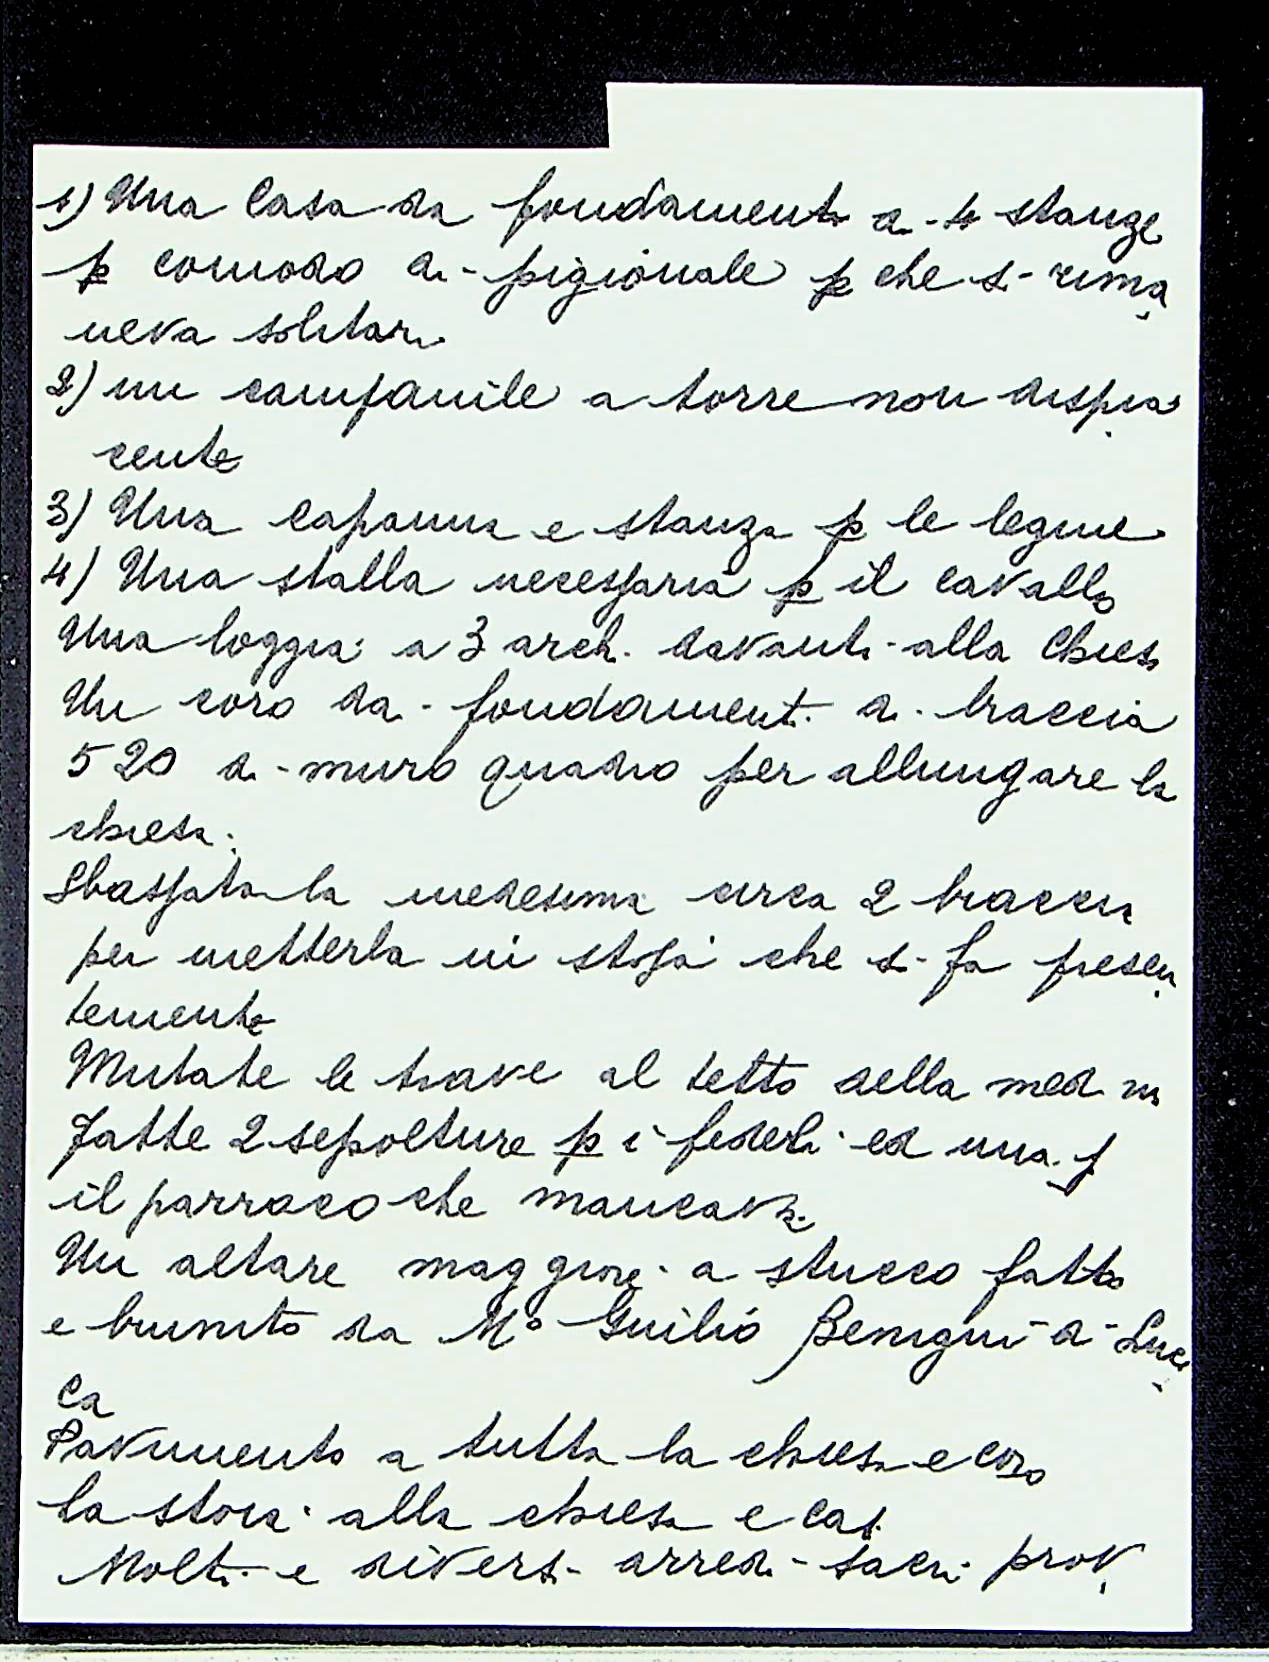 1) Una Casa da fondamenti di 4 stanze
p comodo di pigionale p che si rima
neva solitari
2) un campanile a torre non dispia
cente
3) Una capanna e stanza p le legne
4) Una stalla necessaria p il cavallo
Una loggia a 3 archi davanti alla Chiesa
Un coro da fondamenti di braccia
520 di muro quadro per allungare la
chiesa.
Sbassata la medesima circa 2 braccia
per metterla in che si fa presen
temente
Mutate le trave al tetto della med in
Fatte 2 sepolture p i fedeli ed una p
il parroco che mancava
Un altare maggiore a stucco fatto
e brunito da M° Guilio Benigni di Luc
ca
Pavimento a tutta la chiesa e coro
la stoia alla chiesa e cas
Molti e diversi arredi sacri prov